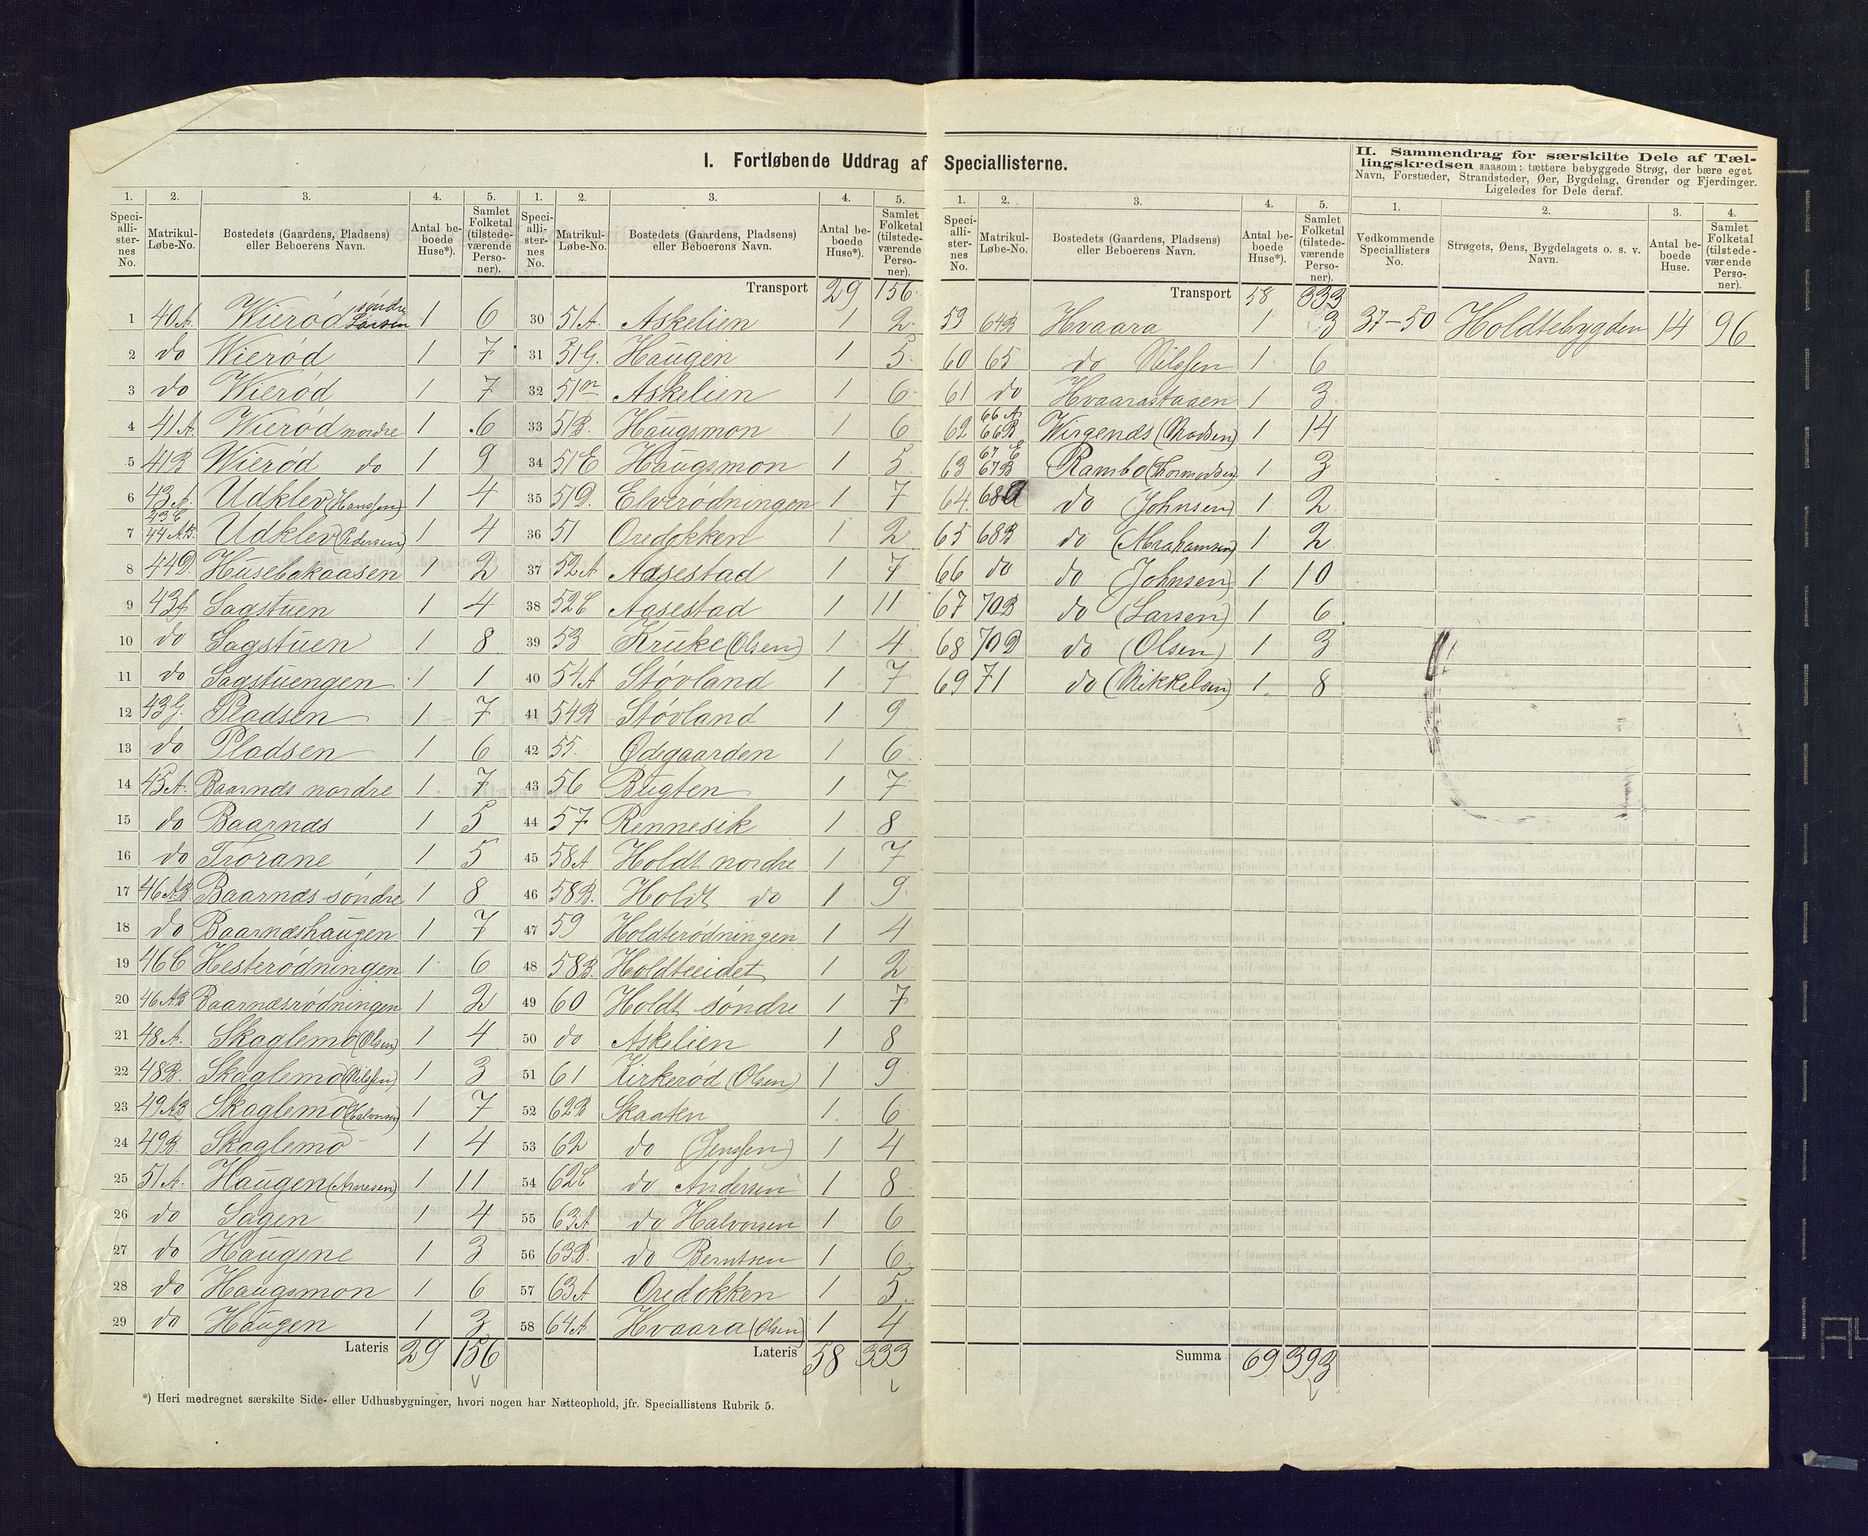 I. Fortløbende Uddrag af Speciallisterne.
II. Sammendrag for særskilte Dele af Tæl-
lingskredsen saasom: tættere bebyggede Strøg, der bære eget
Navn, Forstæder, Strandsteder, Øer, Bygdelag, Grender og Fjerdinger.
Ligeledes for Dele deraf.
1. 2. 3. 4. 5.
Speci-alli-ster-nes No. Matrikul-Løbe-No. Bostedets (Gaardens, Pladsens) eller Beboerens Navn. Antal be-boede Huse*). Samlet Folketal (tilstede-værende Perso-ner).
1 40A. Wierød søndre Larsen 1 6
2 do Wierød 1 7
3 do Wierød 1 7
4 41A. Wierød nordre 1 6
5 41B Wierød do 1 9
6 43A. Udklev (Hanssen) 1 4
7 43E 44AB. Udklev (Pedersen) 1 4
8 44D. Husebokaasen 1 2
9 43f. Sagstuen 1 4
10 do Sagstuen 1 8
11 do Sagstuengen 1 1
12 43G. Pladsen 1 7
13 do Pladsen 1 6
14 45A. Baarnæs nordre 1 7
15 do Baarnæs 1 5
16 do Trorane 1 5
17 46AB Baarnæs søndre 1 8
18 do Baarnæshaugen 1 7
19 46C Hesterødningen 1 6
20 46AB Baarnæsrødningen 1 2
21 48A. Skaglemo (Olsen) 1 4
22 48B. Skaglemo (Nilssen) 1 3
23 49AB Skaglemo (Halvorsen) 1 7
24 49B Skaglemo 1 4
25 51A. Haugen (Arnesen) 1 11
26 do Sagen 1 4
27 do Haugene 1 3
28 do Haugsmon 1 6
29 do Haugen 1 3
Lateris 29 156
1. 2. 3. 4. 5.
Speci-alli-ster-nes No. Matrikul-Løbe-No. Bostedets (Gaardens, Pladsens) eller Beboerens Navn. Antal be-boede Huse*). Samlet Folketal (tilstede-værende Perso-ner).
Transport 29 156
30 51A. Askelien 1 2
31 51G. Haugen 1 5
32 51n Askelien 1 6
33 51B. Haugsmon 1 6
34 51E Haugsmon 1 5
35 51D. Elverødningen 1 7
36 51 Oredokken 1 2
37 52A Aasestad 1 7
38 52C Aasestad 1 11
39 53 Kruke (Olsen) 1 4
40 54A Støvland 1 7
41 54B Støvland 1 9
42 55. Ødegaarden 1 6
43 56 Bugten 1 7
44 57 Rennesik 1 8
45 58A Holdt nordre 1 7
46 58B. Holdt do 1 9
47 59 Holdterødningen 1 4
48 58B. Holdteeidet 1 2
49 60 Holdt søndre 1 7
50 do Askelien 1 8
51 61 Kirkerød (Olsen) 1 9
52 62B Skaaten 1 6
53 62 do (Jenssen) 1 4
54 62C do Andersen 1 8
55 63A do Halvorsen 1 6
56 63B. do Berntsen 1 6
57 63A Oredokken 1 5
58 64A Hvaara (Olsen) 1 4
Lateris 58 333
1. 2. 3. 4. 5.
Speci-alli-ster-nes No. Matrikul-Løbe-No. Bostedets (Gaardens, Pladsens) eller Beboerens Navn. Antal be-boede Huse*). Samlet Folketal (tilstede-værende Perso-ner).
Transport 58 333
59 64B Hvaara 1 3
60 65 do Nilssen 1 6
61 do Hvaarastaaen 1 3
62 66A 66B Wirgenæs (Madsen) 1 14
63 67E 67B Rambo (Thormodsen) 1 3
64. 68A do (Johnsen) 1 2
65 68B do (Abrahamsen) 1 2
66 do do (Johnsen) 1 10
67 70B do (Larsen) 1 6
68 70D do (Olsen) 1 3
69 71 do (Mikkelsen) 1 8
Summa 69 393
1. 2. 3. 4.
Vedkommende Speciallisters No. Strøgets, Øens, Bygdelagets o. s. v. Navn. Antal be-boede Huse. Samlet Folketal (tilstede-værende Perso-ner).
37-50 Holdtebygden 14 96
*) Heri medregnet særskilte Side- eller Udhusbygninger, hvori nogen har Natteophold, jfr. Speciallistens Rubrik 5.